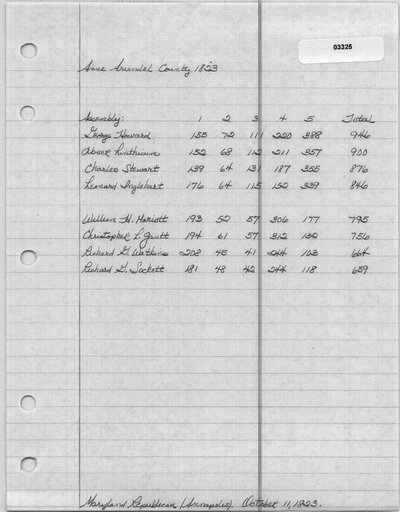 03325
Anne Arundel County 1823
Assembly: 1 2 3 4 5 Total
George Howard 155 72 111 220 388 946
Abner Linthicum 152 68 112 211 357 900
Charles Stewart 139 64 131 187 355 876
Leonard Inglehart 176 64 115 152 339 846
William H. Mariott 193 52 57 306 177 785
Christopher L. Gantt 194 61 57 312 132 756
Richard G. Watkins 208 45 41 103
Richard G. 181 48 42 118 659
Maryland Republican (Annapolis). October 11, 1823.